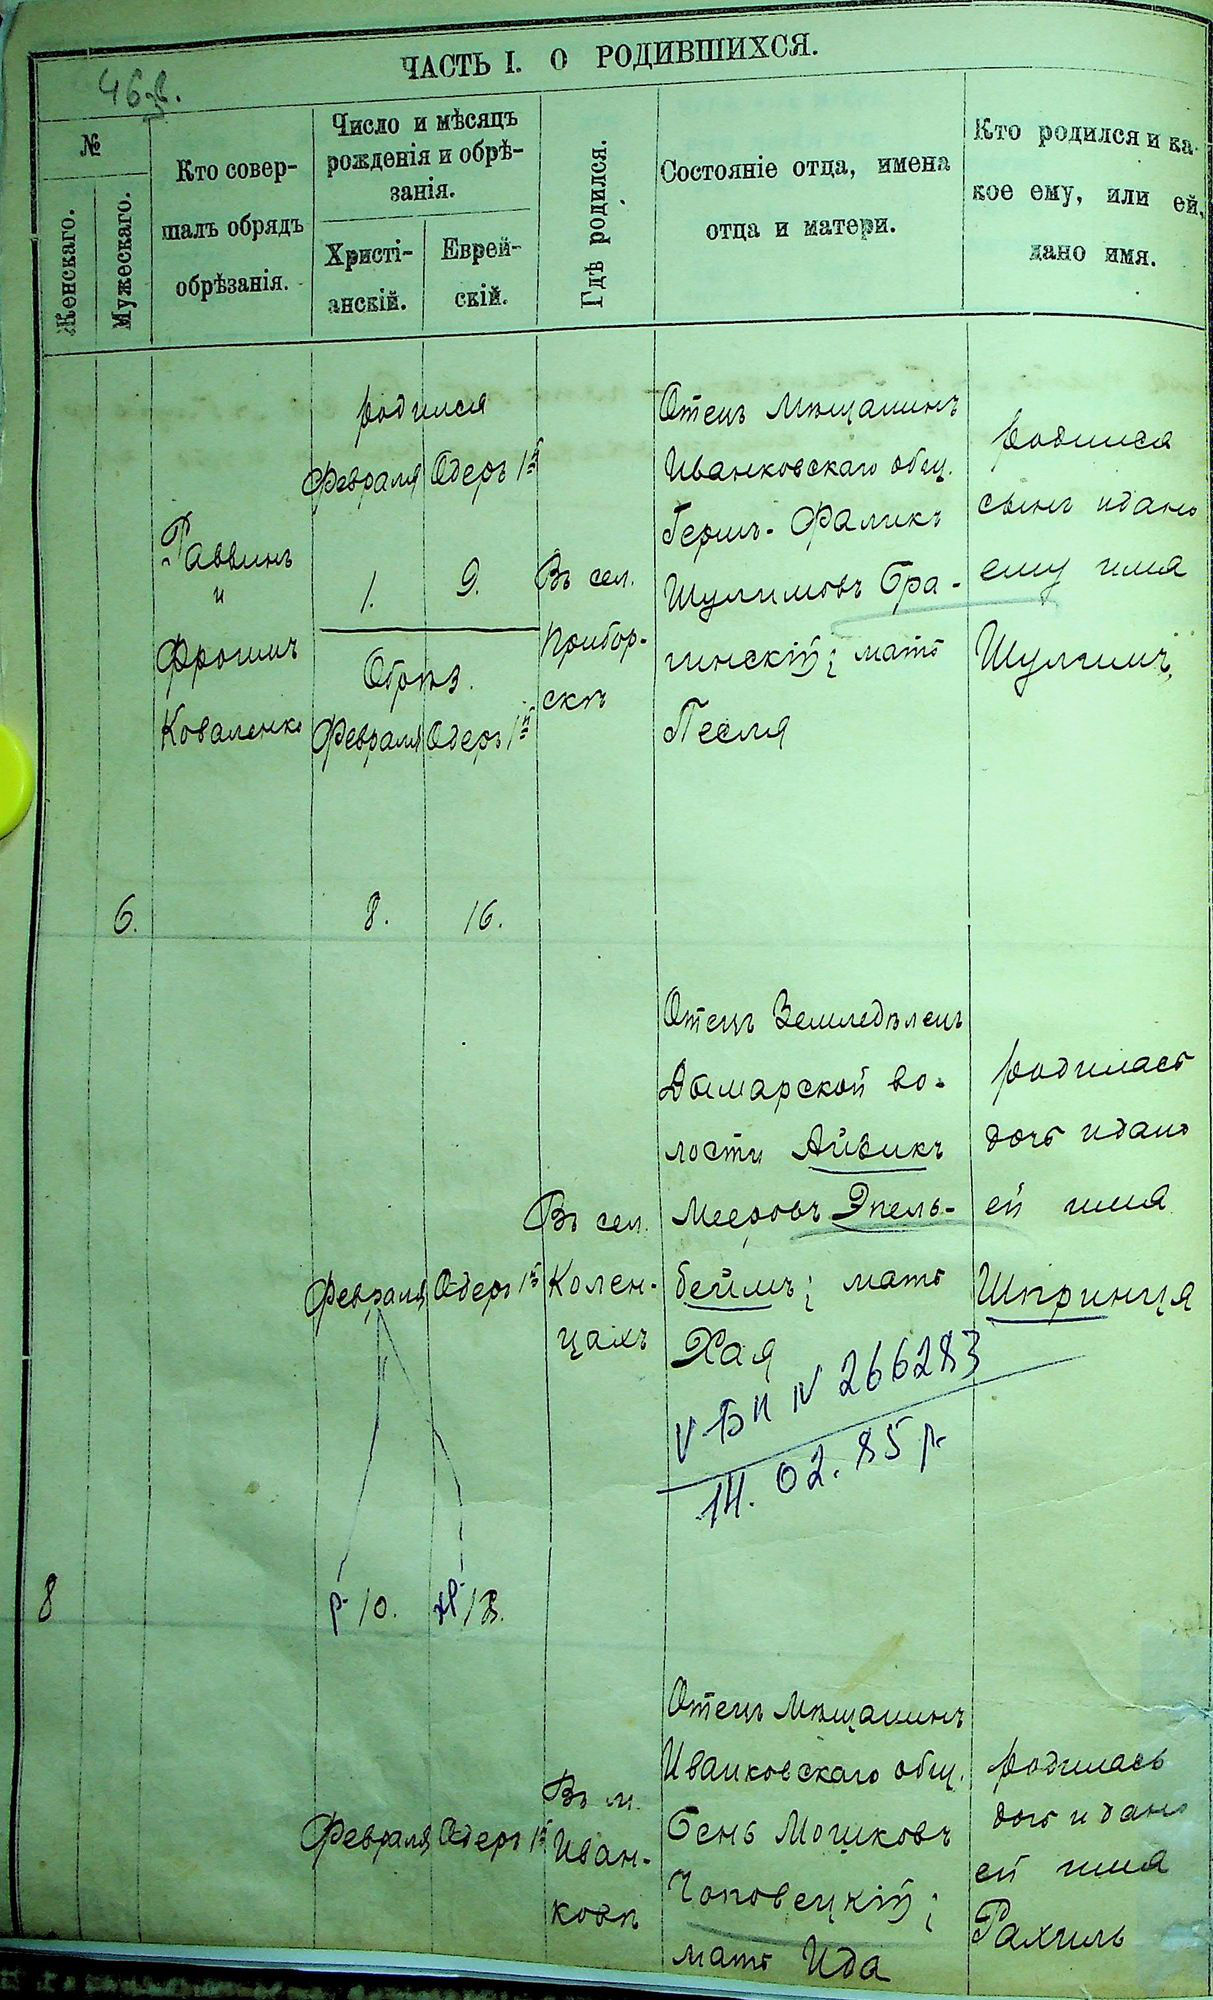 ЧАСТЬ I. О РОДИВШИХСЯ.
46
№
Женскаго.
Мужескаго.
Кто совер-
шалъ обрядъ
обрѣзанія.
Число и мѣсяцъ
рожденія и обрѣ-
занія.
Христі-
анскій.
Еврей-
скій.
Гдѣ родился.
Состояніе отца, имена
отца и матери.
Кто родился и ка-
кое ему, или ей,
дано имя.
6.
Раввинъ
и
Фроимъ
Коваленко
родился
Февраля Одеръ 1й
1. 9.
Обрѣз.
Февраля Одеръ 1й
8. 16.
Въ сел.
Прибор-
скѣ
Отецъ Мѣщанинъ
Иванковскаго общ.
Гершъ-Фаликъ
Шулимовъ Бра-
гинскій; мать
Песля
родился
сынъ и дано
ему имя
Шулимъ.
8
Февраля Одеръ 1й
р. 10. 18.
Въ сел.
Колен-
цахъ
Отецъ Земледѣлецъ
Дымарской во-
лости Айзикъ
Мееровъ Эпель-
беймъ; мать
Хая
V-БК N 266283
14.02.85 р.
родилась
дочь и дано
ей имя
Шпринця
Февраля Одеръ 1й
Въ м.
Иван-
ковѣ
Отецъ Мѣщанинъ
Иванковскаго общ.
Бень Мошковъ
Чоповецкій;
мать Ида
родилась
дочь и дано
ей имя
Рахиль